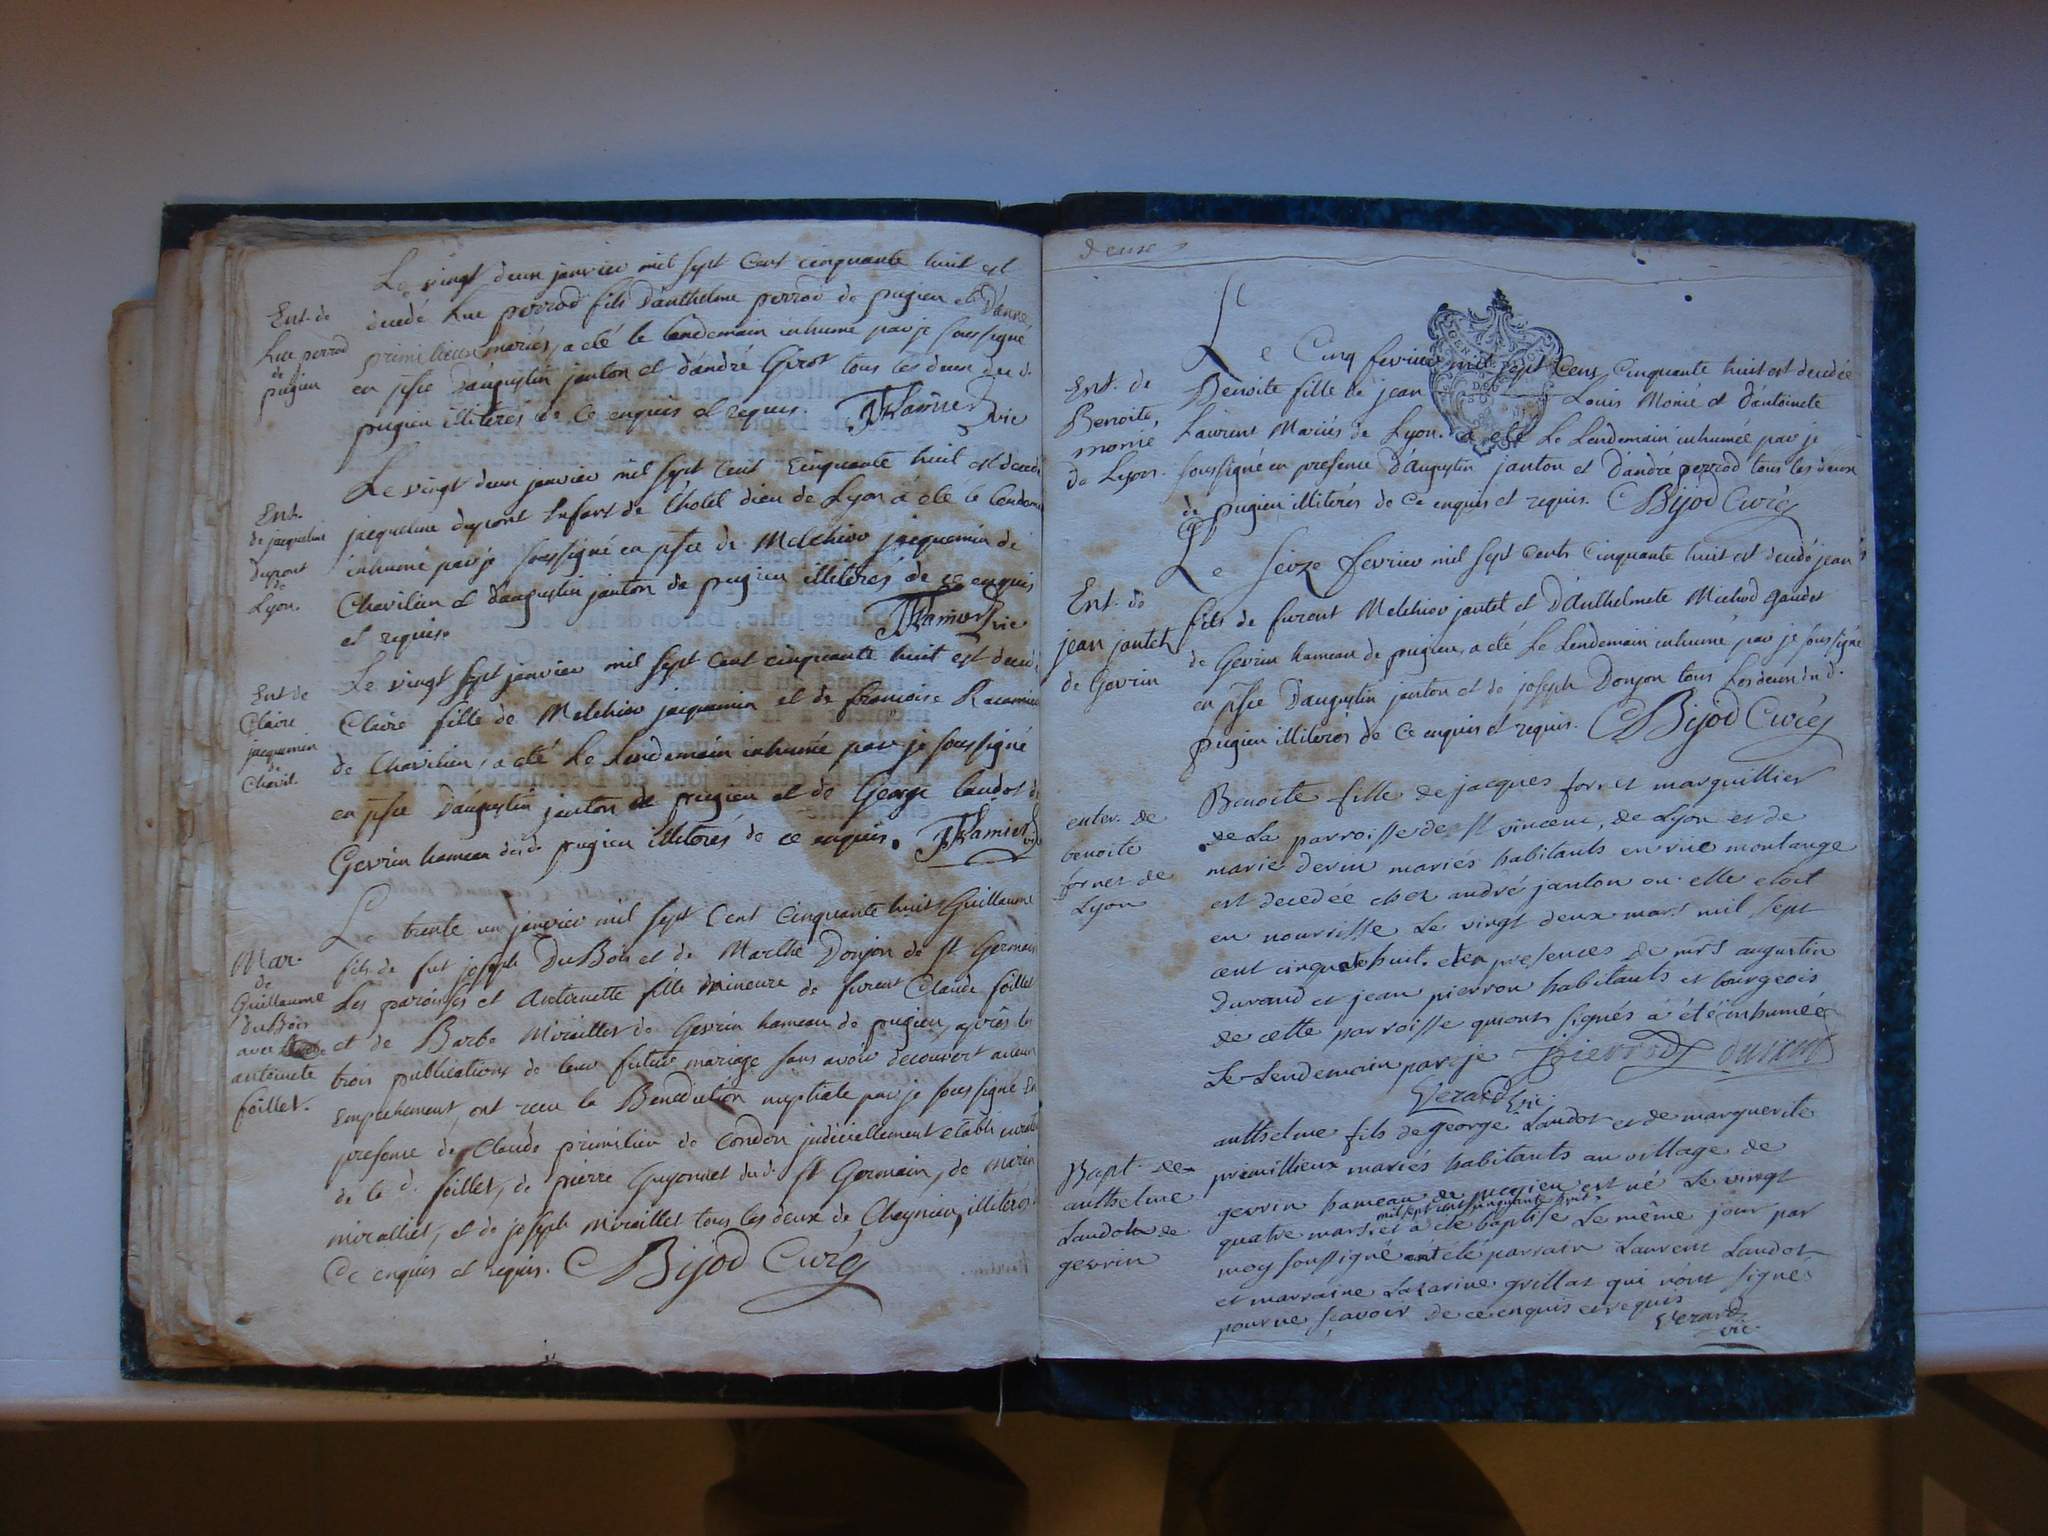 Le vingt deux janvier mil sept Cent cinquante huit est
Ent. de
Luc perrod
de
pugieu
decedé Luc perrod fils d'anthelme perrod de pugieu et d'anne
primilieux mariés, a eté le lendemain inhumé par je soussigné
en pnce d'augustin janton et d'andré Girot tous les deux du d.
pugieu illiterés de Ce enquis et requis. vic
Le vingt deux janvier mil sept cent cinquante huit est decedé
Ent.
de jacqueline
dupont
de
Lyon.
jacqueline dupont Enfant de L'hotel dieu de Lyon a eté le lendemain
inhumé par je soussigné en pnce de Melchior jacquemin de
Chavilieu et d'augustin janton de pugieu illiterés de ce enquis
et requis. vic
Le vingt sept janvier mil sept cent cinquante huit est decedé
Ent de
Claire
jacquemin
de
Chavil.
Claire fille de Melchior jacquemin et de francoise
de Chavilieu, a eté Le Lendemain inhumée par je soussigné
en pnce d'augustin janton de pugieu et de George Landot de
Gevrin hameau dud. pugieu illiterés de ce enquis.
Le trente un janvier mil sept Cent Cinquante huit Guillaume
Mar.
de
Guillaume
duBois
avec
antoinete
foillet.
fils de fut joseph DuBois et de Marthe Donjon de st Germain
Les paroisses et Antoinette fille mineure de furent Claude foillet
et de Barbe Miraillet de Gevrin hameau de pugieu, après les
trois publications de leur futur mariage sans avoir decouvert aucun
Empechement, ont recu la Benediction nuptiale par je soussigné En
presence de Claude primilieu de Condon judiciellement etabli curateur
de le d. foillet, de pierre Guyonnet du d. st Germain, de
miralliet, et de joseph Miraillet tous les deux de Cheynieu, illiterés
de enquis et requis. Bijod Curé
deuxe
Le Cinq fevrier mil sept Cens Cinquante huit est decedée
Ent. de
Benoite
monié
de Lyon.
Benoite fille de jean Louis Monié et d'antoinete
Laurent Mariés de Lyon. a eté Le Lendemain inhumée par je
soussigné en presence d'Augustin janton et d'andré perrod tous les deux
de pugieu illiterés de Ce enquis et requis. Bijod Curé
Le seize fevrier mil sept Cents Cinquante huit est decedé jean
Ent. de
jean jantet
de Gevrin
fils de furent Melchior jantet et d'Anthelmete Michod gaudet
de Gevrin hameau de pugieu, a eté Le Lendemain inhumé par je soussigné
en pnce d'augustin janton et de joseph Donjon tous Les deux du d.
pugieu illiterés de Ce enquis et requis. Bijod Curé
enter. de
benoite
fornet de
Lyon
Benoite fille de jacques fornet marguillier
de La parroisse de st vincent, de Lyon et de
marie devin mariés habitants en rue montange
est decedée chez andré janton ou elle etoit
en nourisse Le vingt deux mars mil sept
cent cinquate huit. et en presences de mrs augustin
durand et jean pierron habitants et bourgeois
de cette parroisse qui ont signés a été inhumée
Le Lendemain par je pierron durand
Verard vic.
Bapt. de
anthelme
Landot de
gevrin
anthelme fils de george Landot et de marguerite
primillieux mariés habitants au village de
gevrin hameau de pugieu est né Le vingt
mil sept cent cinquante huit
quatre mars. et a eté baptisé Le même jour par
moy soussigné ont été parrain Laurent Landot
et marraine Lazarine grillat qui n'ont signé
pour ne sçavoir de ce enquis et requis
Verard
vic.